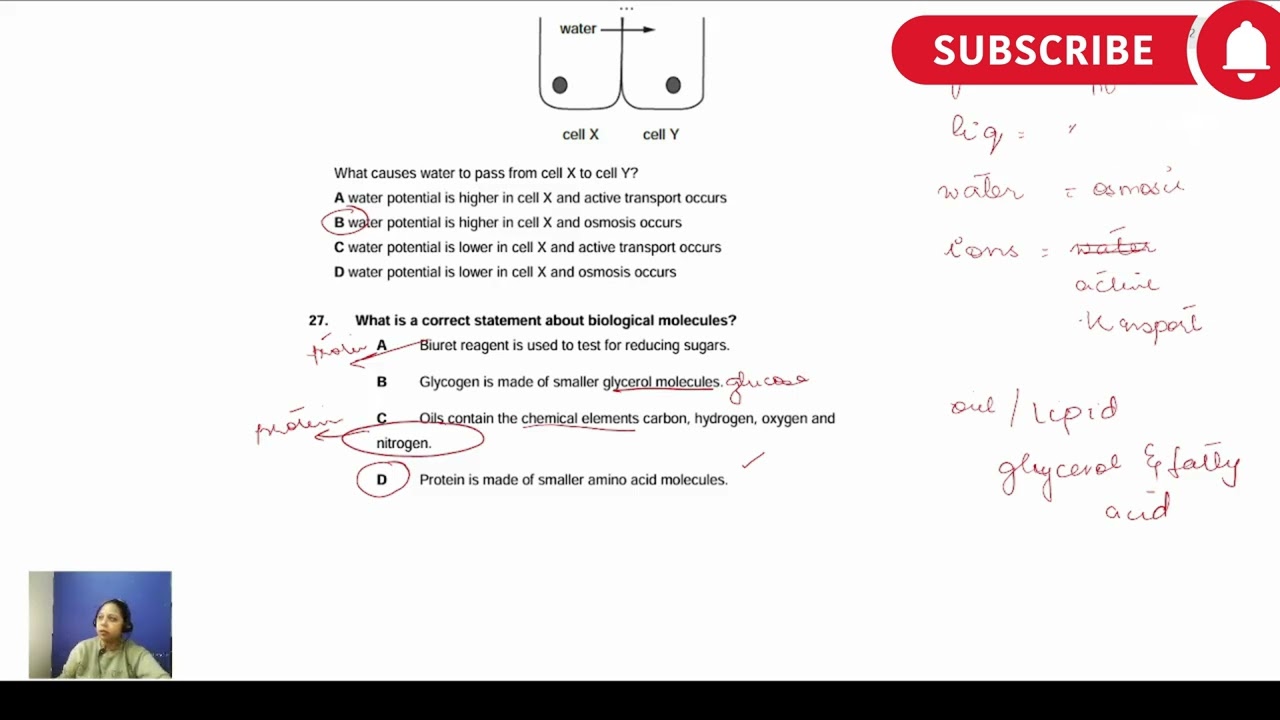 ...
water
SUBSCRIBE
cell X cell Y
liq =
water = osmosis
ions = water
active
transport
What causes water to pass from cell X to cell Y?
A water potential is higher in cell X and active transport occurs
B water potential is higher in cell X and osmosis occurs
C water potential is lower in cell X and active transport occurs
D water potential is lower in cell X and osmosis occurs
27. What is a correct statement about biological molecules?
protein A Biuret reagent is used to test for reducing sugars.
B Glycogen is made of smaller glycerol molecules. glucose
protein C Oils contain the chemical elements carbon, hydrogen, oxygen and
nitrogen.
D Protein is made of smaller amino acid molecules.
oil / Lipid
glycerol & fatty
acid